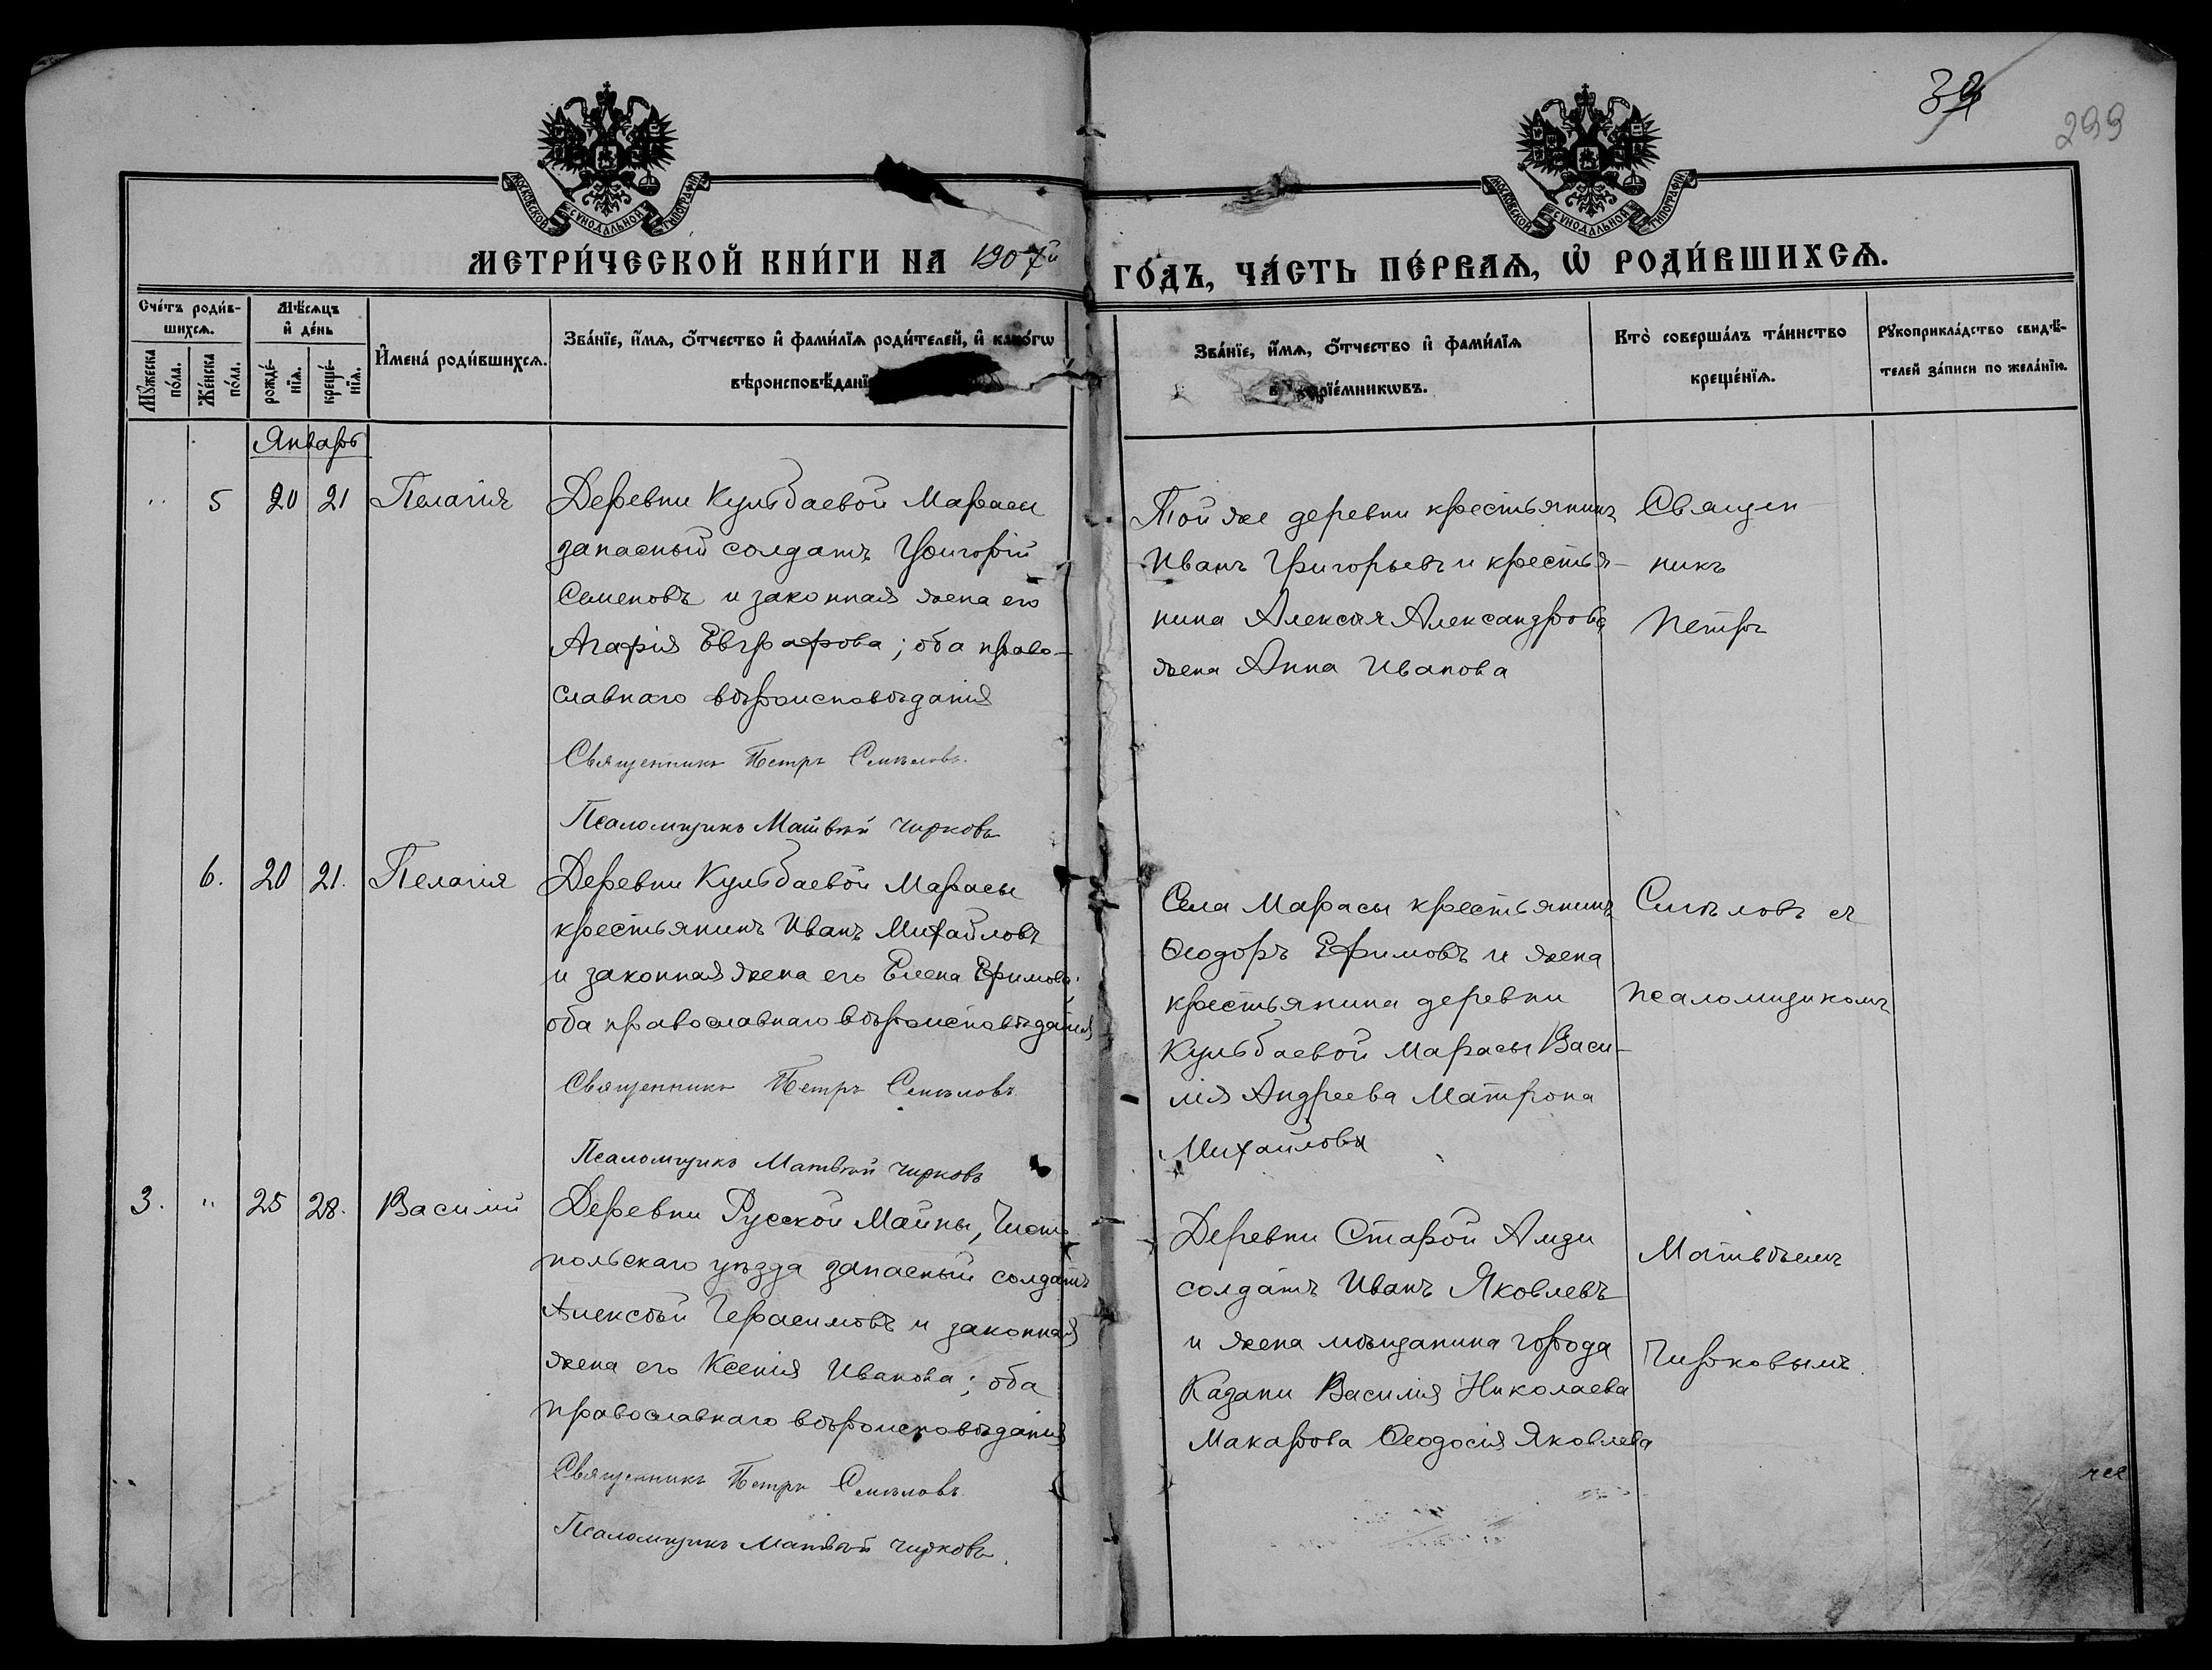 39
299
МОСКОВСКОЙ СУНОДАЛЬНОЙ ТИПОГРАФІИ
МОСКОВСКОЙ СУНОДАЛЬНОЙ ТИПОГРАФІИ
МЕТРИ́ЧЕСКОЙ КНИ́ГИ НА 1907й
ГО́ДЪ, ЧА́СТЬ ПЕ́РВАѦ, Ѡ РОДИ́ВШИХСѦ.
Сче́тъ роди́в-
шихсѧ.
Мꙋ́жеска
по́ла.
Же́нска
по́ла.
Мѣ́сѧцъ
и҆ де́нь
рожде́-
нїѧ.
креще́-
нїѧ.
И҆мена̀ роди́вшихсѧ.
Зва́нїе, и҆́мѧ, ѻ҆́тчество и҆ фами́лїѧ роди́телей, и҆ како́гѡ
вѣроисповѣ́данї
Зва́нїе, и҆́мѧ, ѻ҆́тчество и҆ фами́лїѧ
прїе́мникѡвъ.
Кто̀ соверша́лъ та́инство
креще́нїѧ.
Рꙋкоприкла́дство свидѣ́-
телей за́писи по жела́нїю.
Январь
" 5 20 21 Пелагія
Деревни Кульбаевой Марасы
запасный солдатъ Григорій
Семеновъ и законная жена его
Агафія Евграфова; оба право-
славнаго вѣроисповѣданія
Священникъ Петръ Смѣловъ.
Псаломщикъ Матвѣй Чирковъ
Той же деревни крестьянинъ
Иванъ Григорьевъ и крестья-
нина Алексѣя Александрова
жена Анна Иванова
Священ-
никъ
Петръ
6. 20 21. Пелагія
Деревни Кульбаевой Марасы
крестьянинъ Иванъ Михайловъ
и законная жена его Елена Ефимова;
оба православнаго вѣроисповѣданія
Священникъ Петръ Смѣловъ
Псаломщикъ Матвѣй Чирковъ
Села Марасы крестьянинъ
Ѳеодоръ Ефимовъ и жена
крестьянина деревни
Кульбаевой Марасы Васи-
лія Андреева Матрона
Михайлова
Смѣловъ съ
псаломщикомъ
3. " 25 28. Василій
Деревни Русской Майны, Чисто
польскаго уѣзда запасный солдатъ
Алексѣй Герасимовъ и законная
жена его Ксенія Иванова; оба
православнаго вѣроисповѣданія
Священникъ Петръ Смѣловъ
Псаломщикъ Матвѣй Чирковъ.
Деревни Старой Амзи
солдатъ Иванъ Яковлевъ
и жена мѣщанина города
Казани Василія Николаева
Макарова Ѳеодосія Яковлева
Матвѣемъ
Чирковымъ.